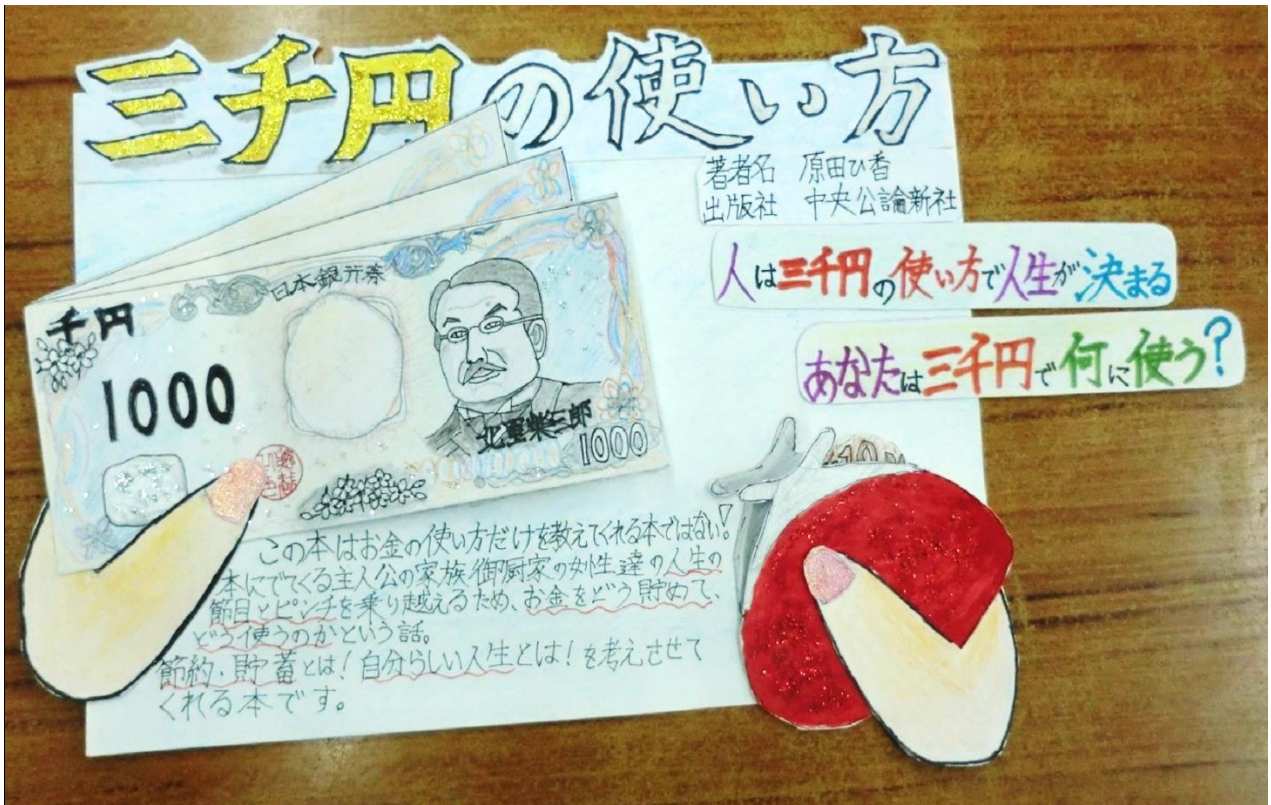 三千円の使い方
著者名 原田ひ香
出版社 中央公論新社
人は三千円の使い方で人生が決まる
あなたは三千円で何に使う?
千円
日本銀行券
1000
北里柴三郎
1000
この本はお金の使い方だけを教えてくれる本ではない!
本にでてくる主人公の家族御厨家の女性達の人生の
節目とピンチを乗り越えるため、お金をどう貯めて、
どう使うのかという話。
節約・貯蓄とは!自分らしい人生とは!を考えさせて
くれる本です。